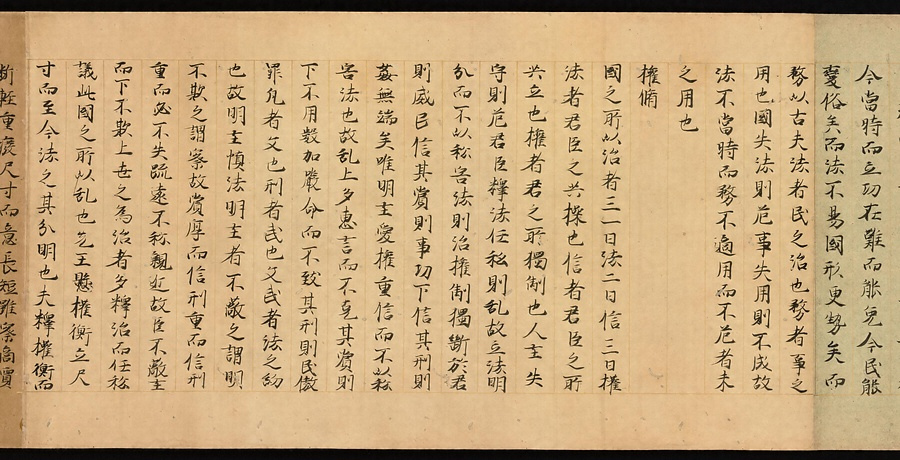 今當時而立功在難而能免今民能
變俗矣而法不易國形更勢矣而
務以古夫法者民之治也務者事之
用也國失法則危事失用則不成故
法不當時而務不適用而不危者未
之用也
權脩
國之所以治者三一曰法二曰信三曰權
法者君臣之共操也信者君臣之所
共立也權者君之所獨制也人主失
守則危君臣釋法任私則乱故立法明
分而不以私害法則治權制獨斷於君
則威民信其賞則事功下信其刑則
姦無端矣唯明主愛權重信而不以私
害法也故乱上多惠言而不克其賞則
下不用數加嚴令而不致其刑則民傲
罪凡者文也刑者武也文武者法之約
也故明主慎法明主者不蔽之謂明
不欺之謂察故賞厚而信刑重而信刑
重而必不失疏遠不私親近故臣不蔽主
而下不欺上世之為治者多釋治而任私
議此國之所以乱也先王懸權衡立尺
寸而至今法之其分明也夫釋權衡而
斷輕重廢尺寸而意長短雖察商賈